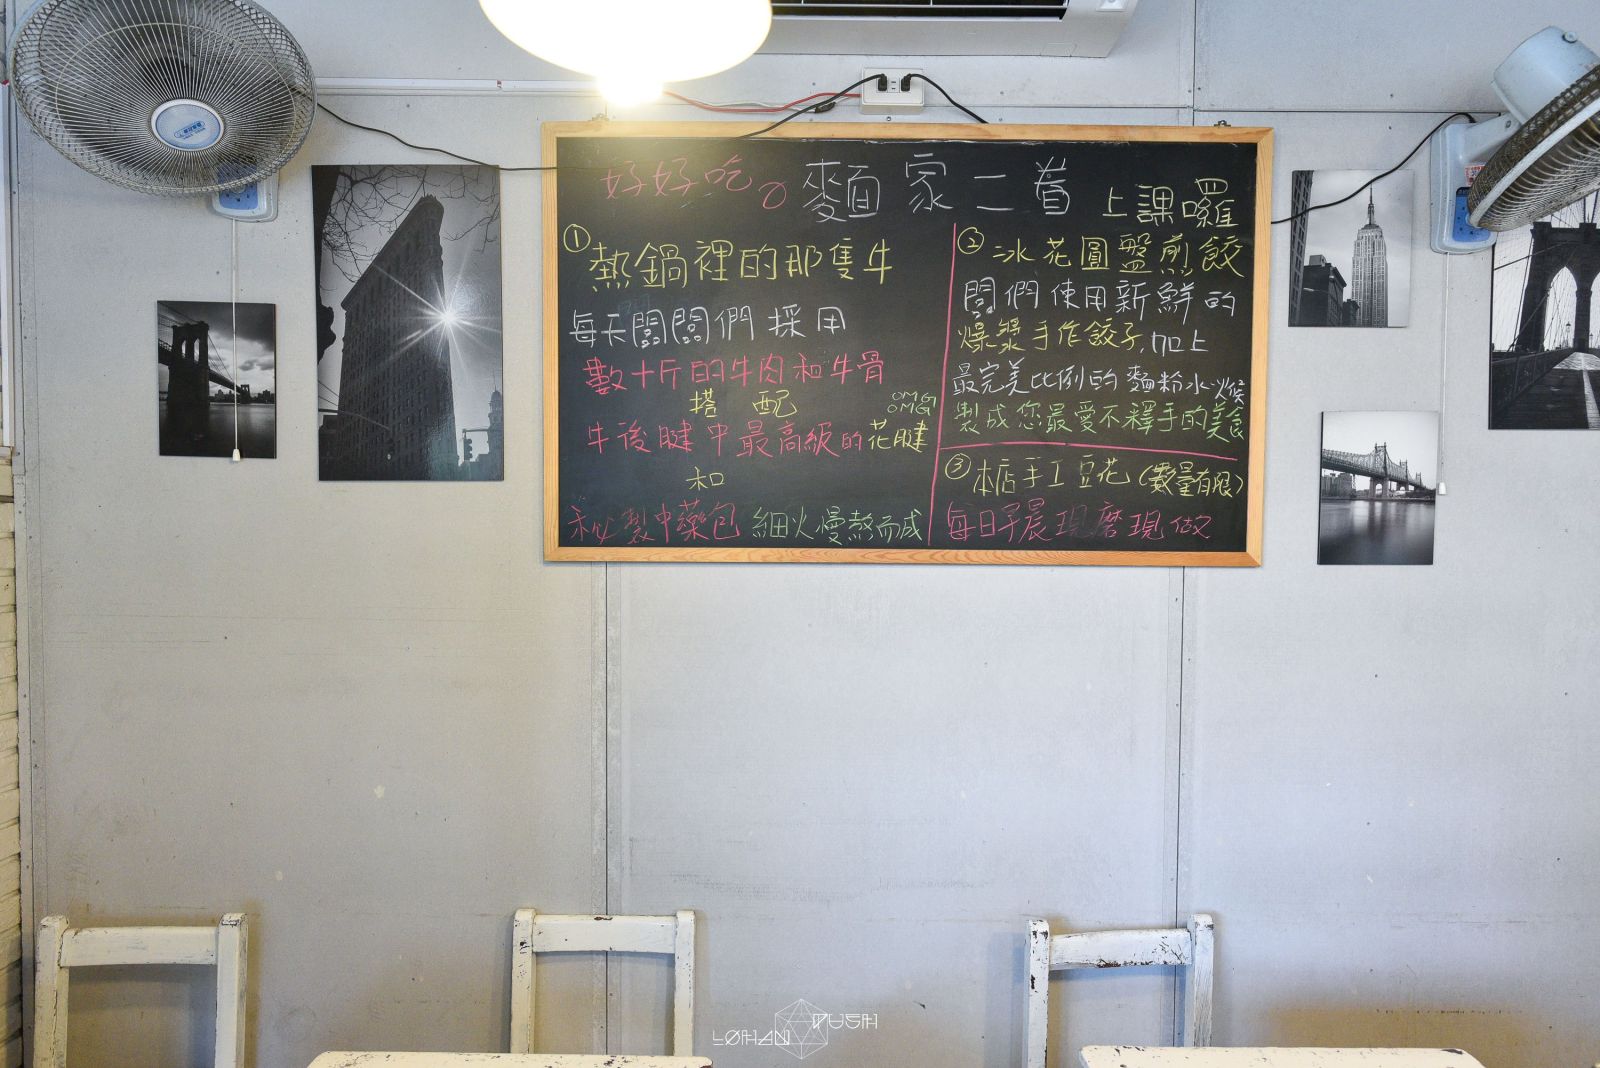 好好吃。麵家二首 上課囉
①熱鍋裡的那隻牛
每天闆闆們採用
數十斤的牛肉和牛骨
搭配
OMG
OMG
牛後腱中最高級的花腱
和
秘製中藥包 細火慢熬而成
②冰花圓盤煎餃
闆們使用新鮮的
爆漿手作餃子,加上
最完美比例的麵粉水,煨
製成您最愛不釋手的美食
③本店手工豆花(數量有限)
每日早晨現磨現做
LØHAN
PUSH